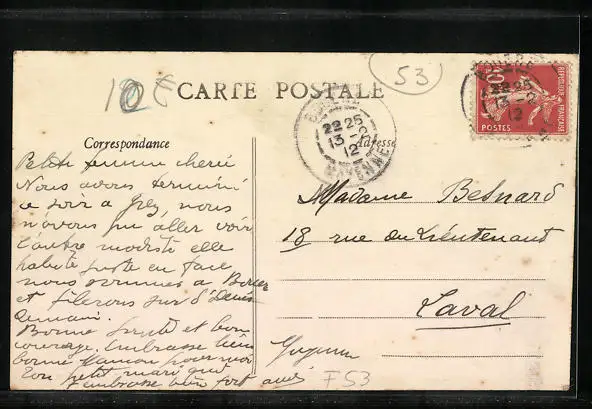 53
CARTE POSTALE
10
REPUBLIQUE FRANÇAISE
POSTES
BOUERE
22 25
13 - 2
12
MAYENNE
Correspondance
Adresse
Petite femme chérie
Nous avons terminé
ce soir à Grez, nous
n'avons pu aller voir
l'autre modiste elle
habite juste en face
nous sommes à Bouer
et filerons sur St Denis
demain.
Bonne santé et bon
courage, embrasse bien
bonne Maman pour moi
Ton petit mari qui
t'embrasse bien fort aussi
Madame Besnard
18 rue du Lieutenant
Laval
F53